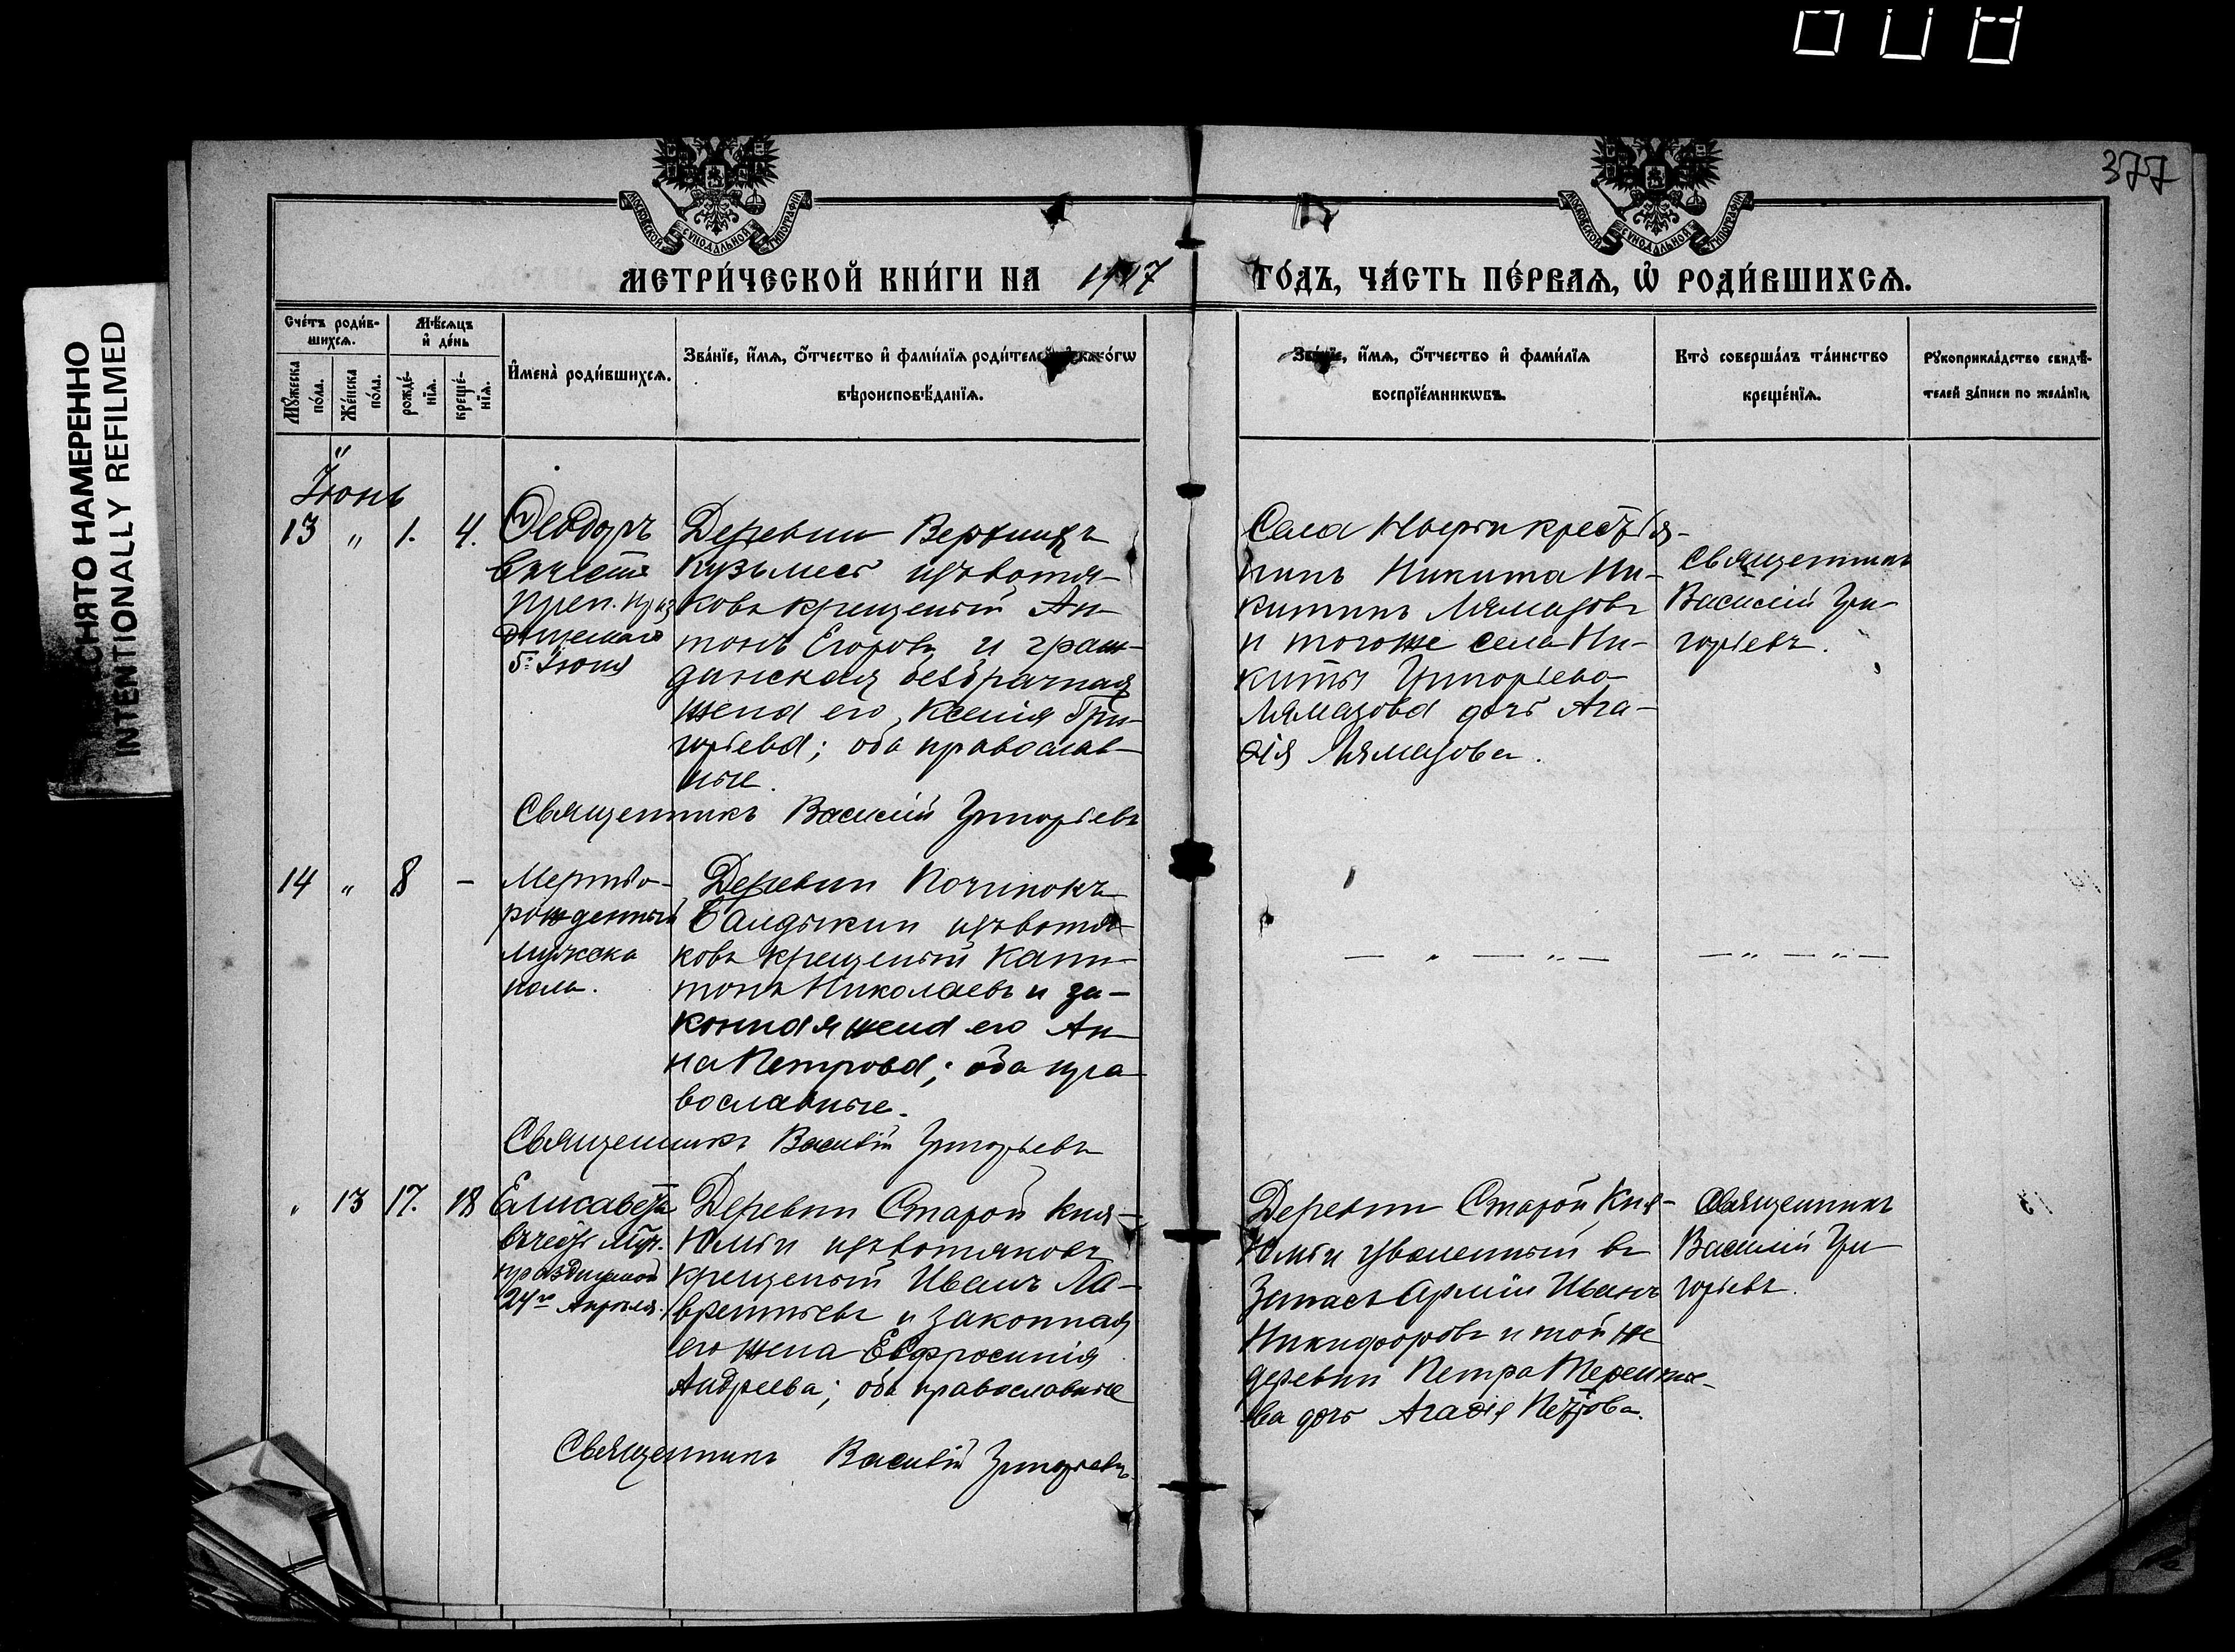 377
СНЯТО НАМЕРЕННО
INTENTIONALLY REFILMED
МОСКОВСКОЙ СѴНОДАЛЬНОЙ ТИПОГРАФІИ.
МОСКОВСКОЙ СѴНОДАЛЬНОЙ ТИПОГРАФІИ.
МЕТРИ́ЧЕСКОЙ КНИ́ГИ НА 1917 ГО́ДЪ, ЧА́СТЬ ПЕ́РВАѦ, Ѡ РОДИ́ВШИХСѦ.
Сче́тъ роди́в-
шихсѧ.
Мꙋ́жеска
по́ла.
Же́нска
по́ла.
Мѣ́сѧцъ
и҆ де́нь
рожде́-
нїѧ.
креще́-
нїѧ.
И҆мена̀ роди́вшихсѧ.
Зва́нїе, и҆́мѧ, ѻ҆́тчество и҆ фами́лїѧ роди́телей, и҆ како́гѡ
вѣроисповѣ́данїѧ.
Зва́нїе, и҆́мѧ, ѻ҆́тчество и҆ фами́лїѧ
воспрїе́мникѡвъ.
Кто̀ соверша́лъ та́инство
креще́нїѧ.
Рꙋкоприкла́дство свидѣ́-
телей за́писи по жела́нїю.
Іюнь
13 " 1. 4.
Ѳеодоръ
въ честь
преп. праз
днуемаго
5го Іюня
Деревни Верхнихъ
Кузьмесъ изъ вотя-
ковъ крещеный Ан-
тонъ Егоровъ и граж-
данская безбрачная
жена его, Ксенія Гри-
горьева; оба православ-
ные.
Священникъ Василій Григорьевъ
Села крестья-
нинъ Никита Ни-
китинъ Лямазовъ
и тогоже села Ни-
киты Григорьева
Лямазова дочь Ага-
ѳія Лямазова.
Священникъ
Василій Гри-
горьевъ.
14 " 8 —
Мертво-
рожденный
мужска
пола.
Деревни Починокъ
Балдыкии изъ вотя-
ковъ крещеный Капи-
тонъ Николаевъ и за-
конная жена его Ан-
на Петрова; оба пра-
вославные.
— " — " — — " — " —
Священникъ Василій Григорьевъ
" 13 17. 18
Елисавета
въ честь муч.
празднуемой
24го Апрѣля.
Деревни Старой Кня-
Юмьи изъ вотяковъ
крещеный Иванъ Ла-
врентьевъ и законная
его жена Евфросинія
Андреева; оба православные
Деревни Старой Кня-
Юмьи уволенный въ
запасъ арміи Иванъ
Никифоровъ и той же
деревни Петра Терентье-
ва дочь Агаѳія Петрова.
Священникъ
Василій Гри-
горьевъ.
Священникъ Василій Григорьевъ.